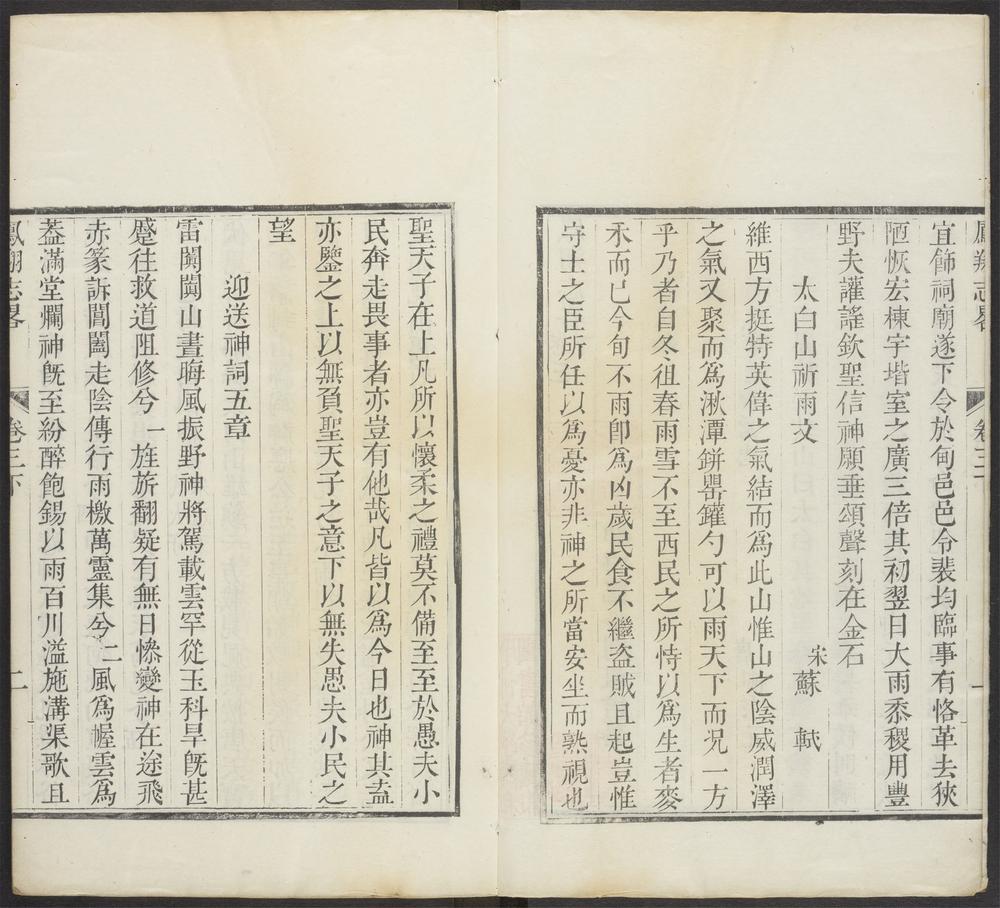 鳳翔志畧 卷三下 一
宜飾祠廟遂下令於甸邑邑令裴均臨事有恪革去狹
陋恢宏棟宇堦室之廣三倍其初翌日大雨黍稷用豐
野夫讙謠欽聖信神願垂頌聲刻在金石
太白山祈雨文 宋蘇 軾
維西方挺特英偉之氣結而爲此山惟山之陰威潤澤
之氣又聚而爲湫潭缾罌鑵勺可以雨天下而况一方
乎乃者自冬徂春雨雪不至西民之所恃以爲生者麥
禾而已今旬不雨卽爲凶歲民食不繼盗賊且起豈惟
守土之臣所任以爲憂亦非神之所當安坐而熟視也
聖天子在上凡所以懷柔之禮莫不備至至於愚夫小
民奔走畏事者亦豈有他哉凡皆以爲今日也神其盍
亦鑒之上以無負聖天子之意下以無失愚夫小民之
望
迎送神詞五章
雷闐闐山晝晦風振野神將駕載雲罕從玉科旱旣甚
蹙往救道阻修兮一旌旂翻疑有無日慘變神在途飛
赤篆訴閶闔走陰傳行雨檄萬靈集兮二風爲幄雲爲
葢滿堂爛神旣至紛醉飽錫以雨百川溢施溝渠歌且
鳳翔志畧 卷三下 二